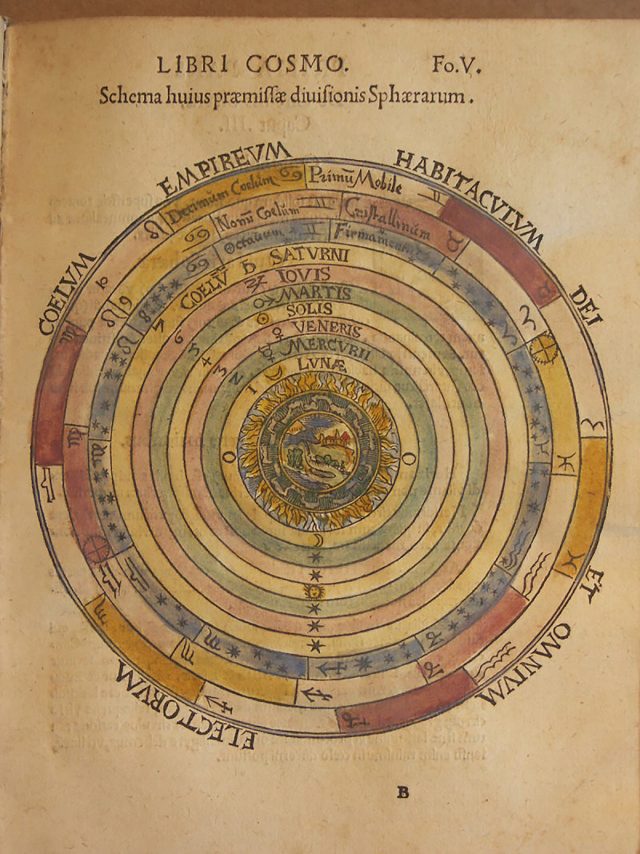 LIBRI COSMO. Fo.V.
Schema huius præmissæ diuiſionis Sphærarum.
COELVM EMPIREVM HABITACVLVM DEI ET OMNIVM ELECTORVM
Decimum Coelum Primũ Mobile
Nonũ Coelum Criſtallinum
Octauum Firmamentum
7 COELV ♄ SATVRNI
6 ♃ IOVIS
5 ♂ MARTIS
4 ☉ SOLIS
3 ♀ VENERIS
2 ☿ MERCVRII
1 ☾ LVNÆ
B